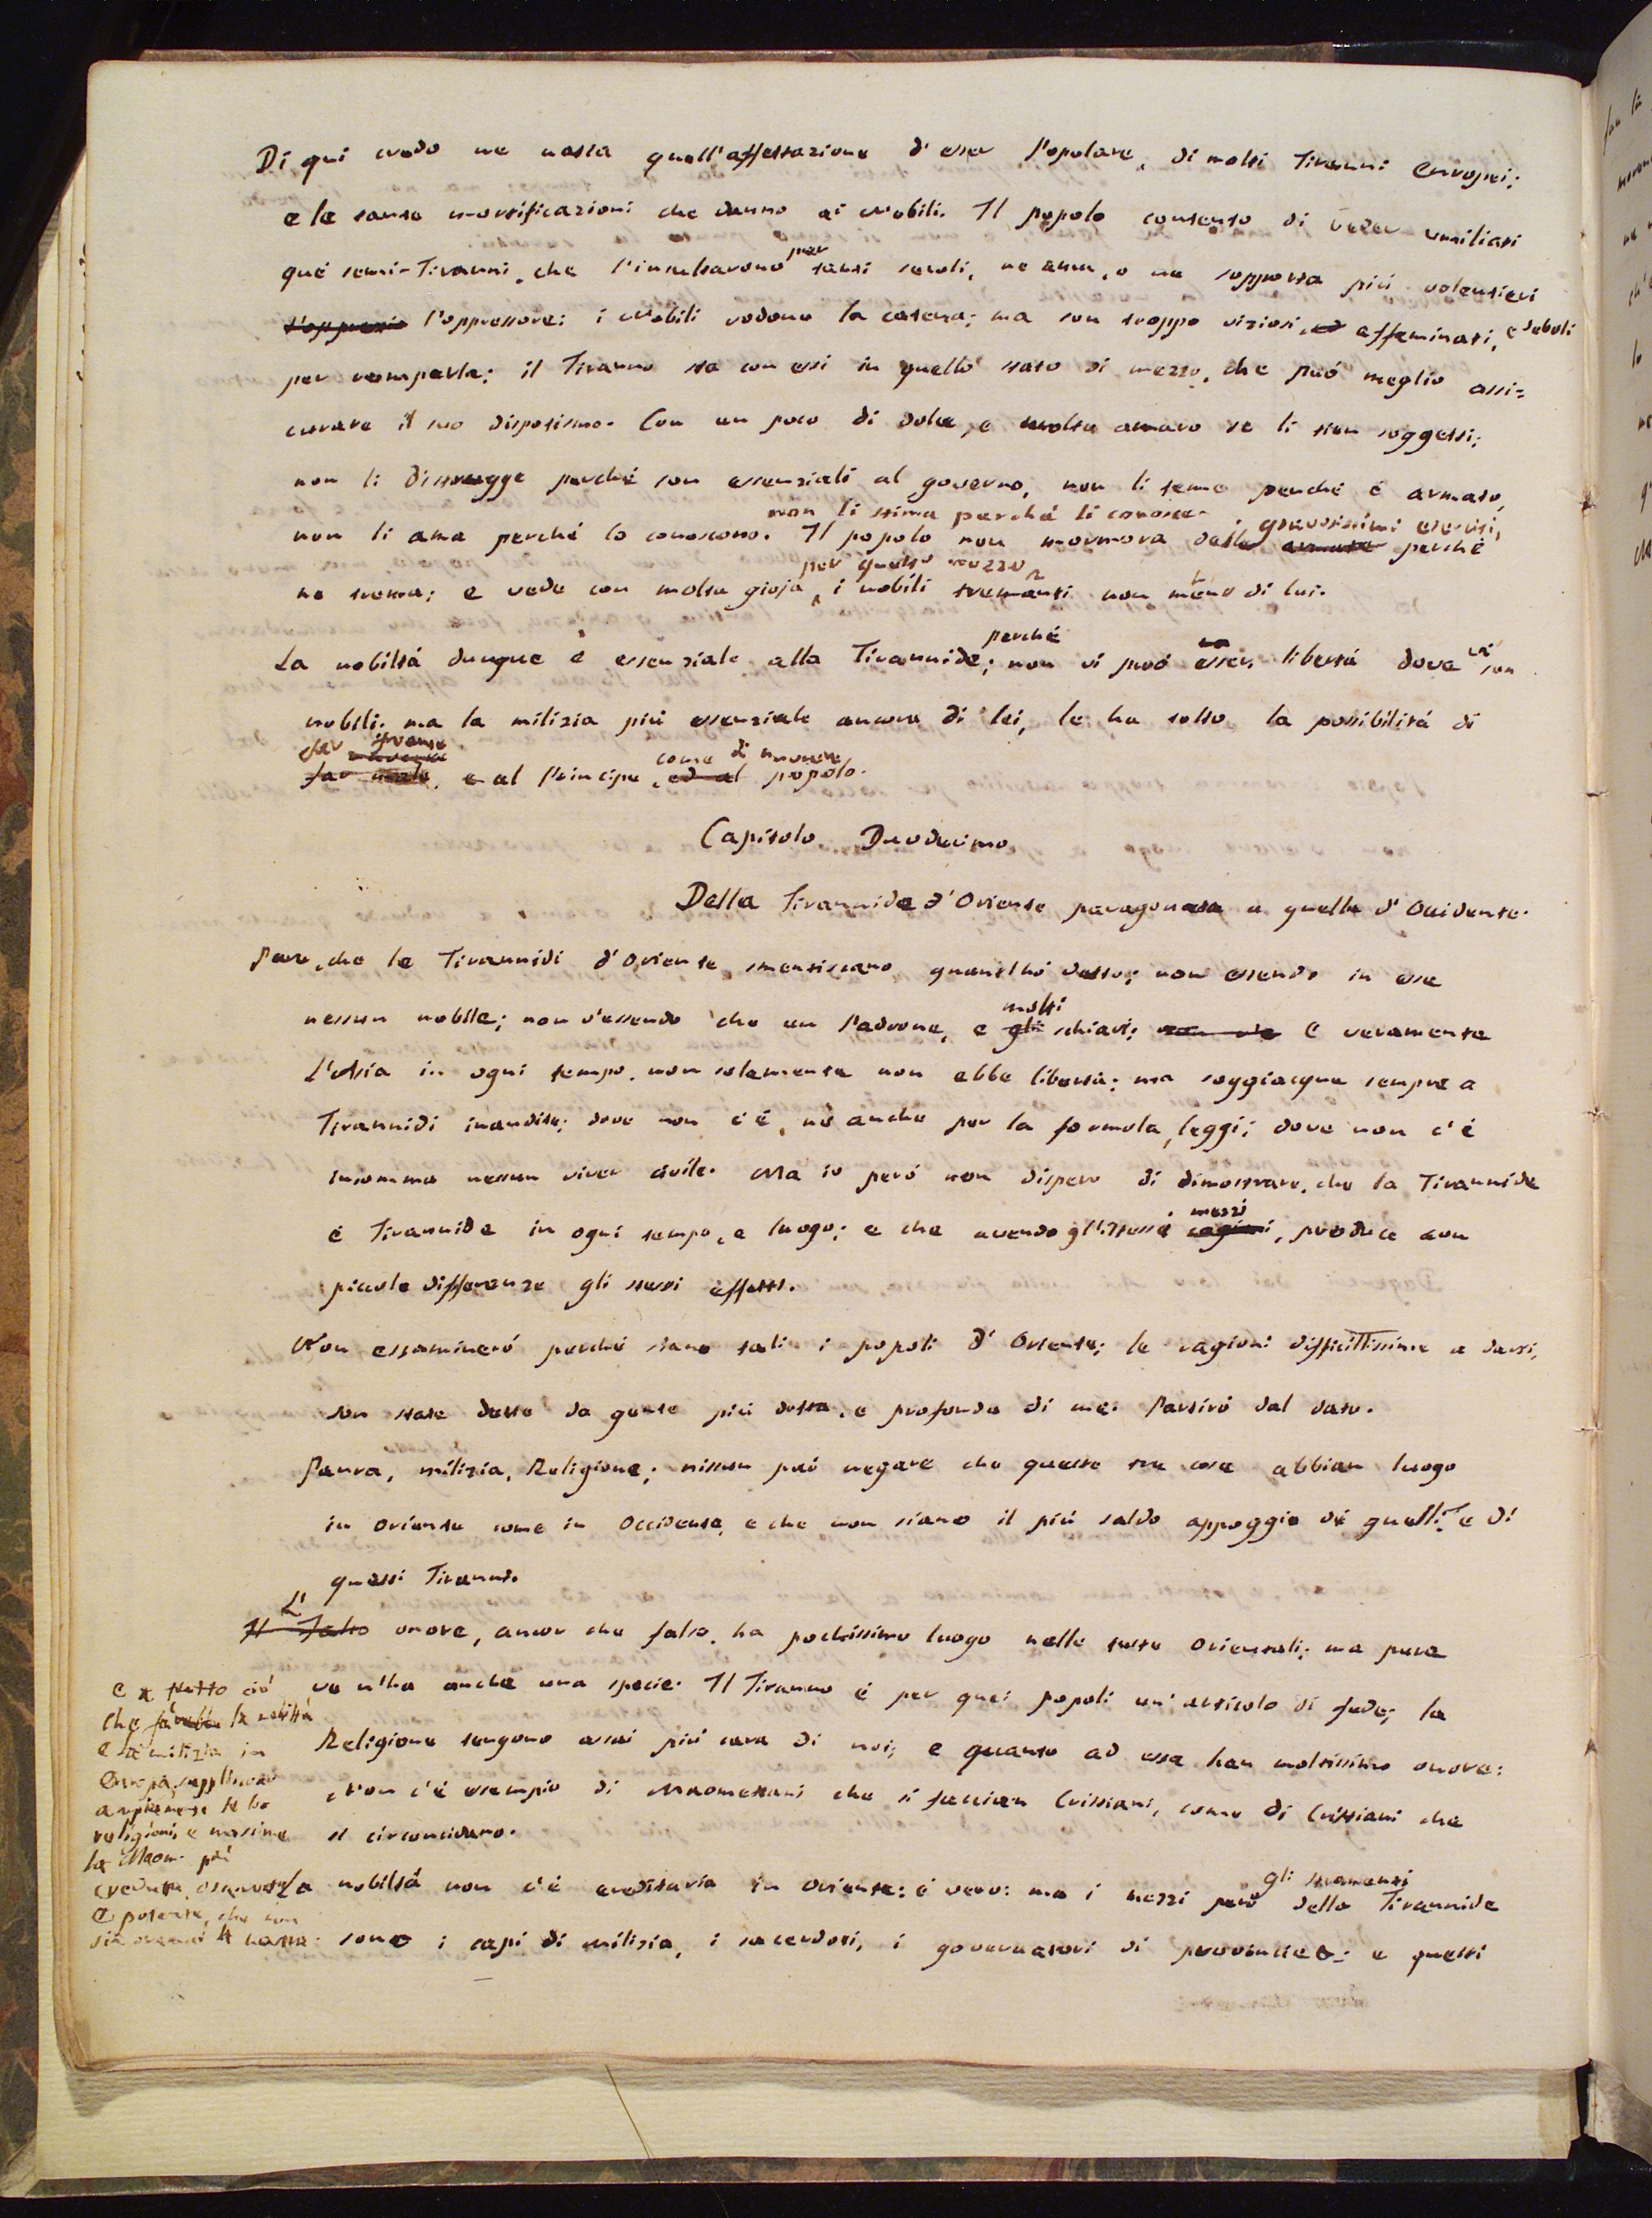 Di qui credo ne nasca quell'affettazione d'esser Popolare, di molti Tiranni Europei;
e le tante mortificazioni che danno ai Nobili. Il popolo contento di veder umiliati
què semi-Tiranni, che l'insultarono per tanti secoli, ne ama, o ne sopporta più volentieri
l'oppressore: i Nobili rodono la catena; ma son troppo viziosi, effeminati, e deboli
per romperla: il Tiranno sta con essi in quello stato di mezzo, che può meglio assi=
curare il suo dispotismo. Con un poco di dolce, e molto amaro se li tien soggetti:
non li distrugge perché son essenziali al governo, non li teme perché è armato,
non li stima perché li conosce.
non li ama perché lo conoscono. Il popolo non mormora dei gravosissimi eserciti, perché
ne trema; e vede con molta gioja, per questo mezzo, i nobili tremanti non meno di lui.
La nobiltà dunque è essenziale alla Tirannide; perché non vi può esser libertà dove vi son
nobili. ma la milizia più essenziale ancora di lei, le ha tolto la possibilità di
far fronte, e al Principe, come di nuocere popolo.
Capitolo Duodecimo
Della Tirannide d'Oriente paragonata a quella d'Occidente.
Pare, che le Tirannidi d'Oriente smentiscano quant'hò detto; non essendo in esse
nessun nobile; non v'essendo che un Padrone, e molti schiavi; E veramente
l'Asia in ogni tempo, non solamente non ebbe libertà; ma soggiacque sempre a
Tirannidi inaudite; dove non c'è, nè anche per la formola, leggi; dove non c'è
insomma nessun viver civile. Ma io però non dispero di dimostrare, che la Tirannide
è Tirannide in ogni tempo, e luogo; e che avendo gl'istessi mezzi, produce con
piccole differenze gli stessi effetti.
Non essaminerò perché siano tali i popoli d'Oriente; le ragioni difficillissime a darsi,
son state dette da gente più dotta, e profonda di me. Partirò dal dato.
Paura, milizia, Religione; nissun può negare che queste tre cose abbian luogo
in Oriente come in Occidente, e che non siano il più saldo appoggio di quelli, e di
questi Tiranni.
L' onore, ancor che falso, ha pochissimo luogo nelle teste Orientali; ma pure
ve n'ha anche una specie. Il Tiranno è per quei popoli un'articolo di fede; la
Religione tengono assai più cara di noi; e quanto ad essa han moltissimo onore:
Non c'è esempio di Maomettani che si faccian Cristiani, come di Cristiani che
si circoncidano.
e a tutto ciò
che fa la nobiltà
e la milizia in
Europa, suppliscono
ampiamente le lor
religioni, e massime
la Maom. più
creduta, osservata
e potente, che non
sia oramai la nostra.
La nobiltà non c'è ereditaria in Oriente: è vero: ma i mezzi però gli stromenti della Tirannide
sono i capi di milizia, i sacerdoti, i governatori di provincie: e questi